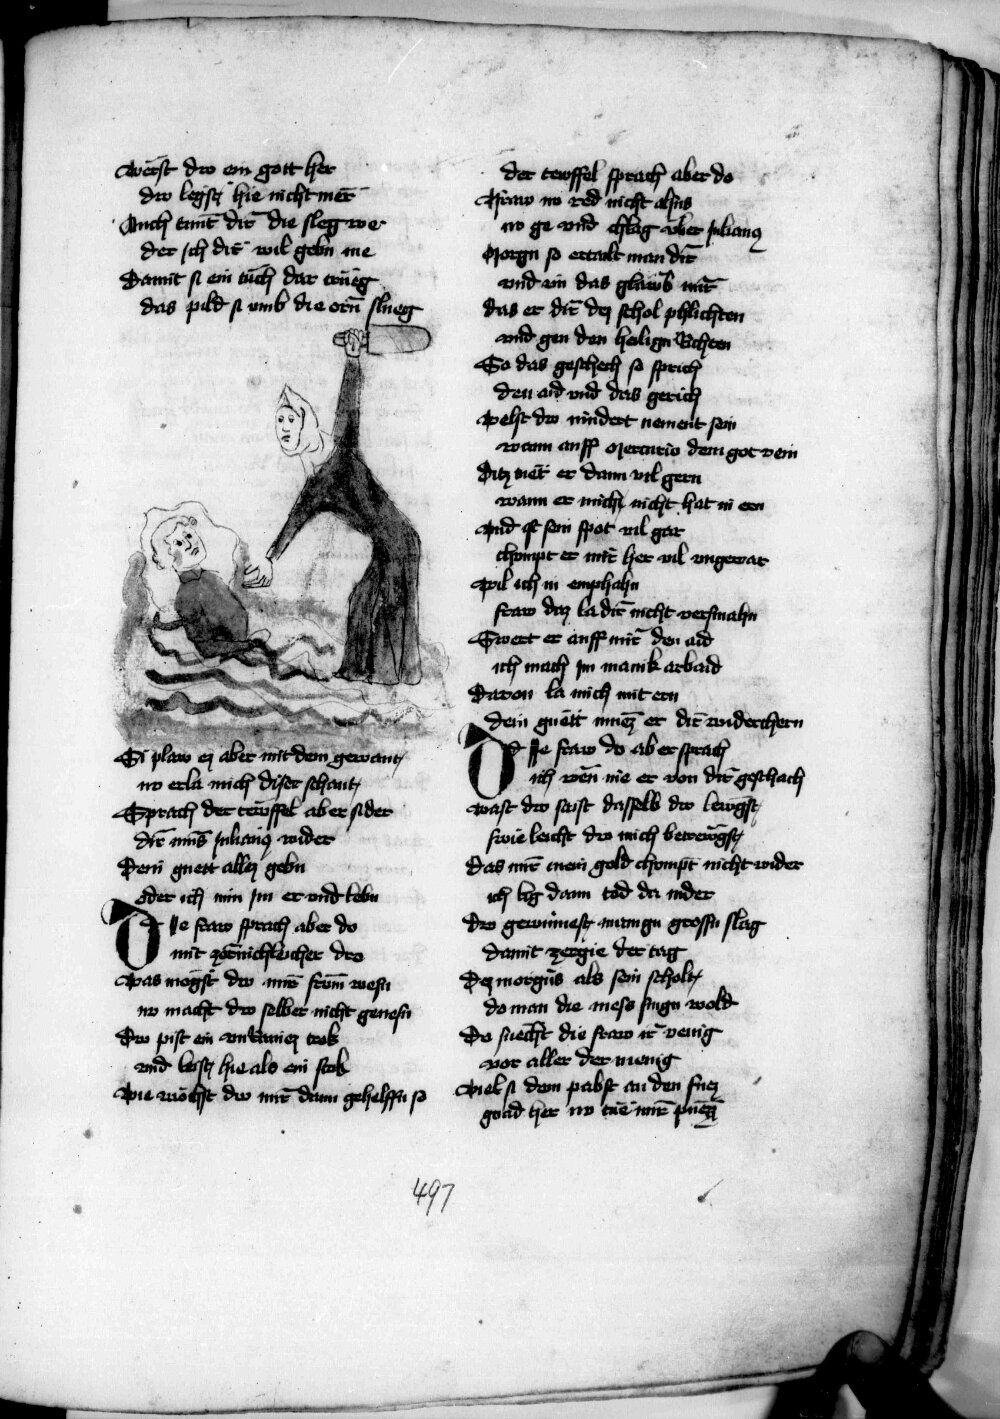 Werst dw ein gott her
dw legst hie nicht mer
Auch tunt dir die sleg we
der ich dir wil gebn me
Damit si ein tuch dar trueg
das pild si vmb die orn slueg
Si plaw ez aber mit dem gewant
nv erla mich diser schant
Sprach der tewffel aber sider
dir mus Julianus wider
Dein guett allez gebn
oder ich nim im er vnd lebn
Die fraw sprach aber do
mit zornichleicher dro
Was mogst dw mir frum wesn
nv macht dw selber nicht genesn
Dw pist ein vnraniez trok
vnd leist hie als ein stok
Wie mochst dw mir dann gehelffn so
der tewffel sprach aber do
Fraw nv red nicht alsus
nv ge vnd chlag vber Julianus
Morgn so ertailt man dir
vnd vin das glawb mir
das er dir dez schol phlichten
vnd gen den heilign Richten
So das geschech so sprich
den aid vnd das gerich
Welst dw nindert nement sein
wann auff Mercurio dem got mein
Ditz niet er dann vil gern
wann er mich nicht hat in ern
Vnd ist sein spot vil gar
chompt er mir her vil vngewar
Wil ich in emphahn
fraw daz la dir nicht versmahn
Swert er auff mir den aid
ich mach im manik arbaid
Davon la mich mit ern
dein guett muez er dir widerchern
Die fraw do aber sprach
ich wen nie er von dir geschach
wast dw saist dasselb dw lewgst
swie leicht dw mich betrewgst
Das mir mein gold chompt nicht wider
ich leg dann tod da nider
Dw gewinnest mangn grossn slag
damit zergie der tag
Dez morgns als sein scholt
do man die mess singn wold
Do suecht die fraw ir venig
vor aller der menig
Viel si dem pabst an den fuez
gnad her nv tue mir puezz
497